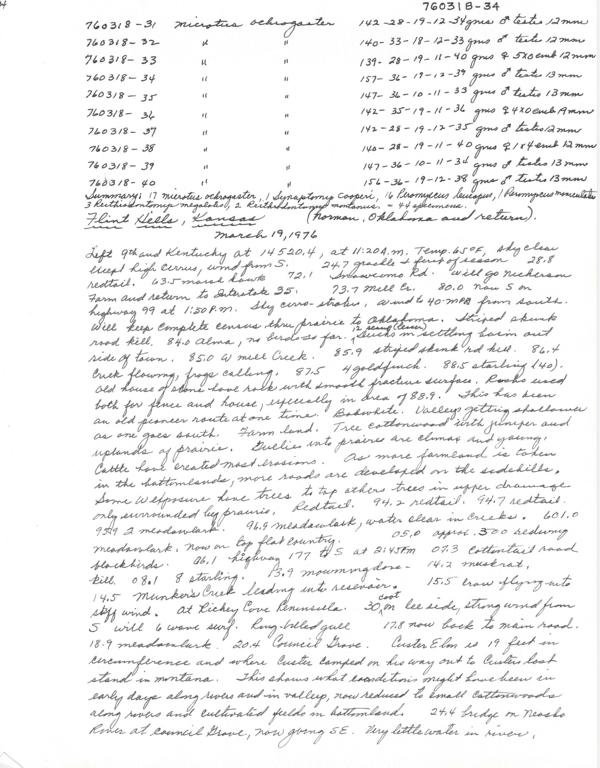 760318-34
760318-31 microtus ochrogaster 142-28-19-12-34 gms ♂ testis 12mm
760318-32 " " 140-33-18-12-33 gms ♂ testis 12mm
760318-33 " " 139-28-19-11-40 gms ♀ 5x0 emb 12mm
760318-34 " " 157-36-19-12-39 gms ♂ testis 13mm
760318-35 " " 147-36-10-11-33 gms ♂ testis 13mm
760318-36 " " 142-35-19-11-36 gms ♀ 4x0 emb 19mm
760318-37 " " 142-28-19-12-35 gms ♂ testis 12mm
760318-38 " " 140-28-19-11-40 gms ♀ 1x4 emb 12mm
760318-39 " " 147-36-10-11-36 gms ♂ testis 13mm
760318-40 " " 156-36-19-12-38 gms ♂ testis 13mm
Summary: 17 microtus ochrogaster, 1 Synaptomys cooperi, 16 Peromyscus leucopus, 1 Peromyscus maniculatus
3 Reithrodontomys megalotis, 2 Reithrodontomys montanus. = 44 specimens.
Flint Hills, Kansas (Norman, Oklahoma and return).
March 19, 1976
Left 9th and Kentucky at 14520.4, at 11:20 A.m. Temp. 65°F, sky clear
except high cirrus, wind from S. 24.7 grackle + first of season 28.8
redtail. 63.5 marsh hawk 72.1 Snokomo Rd. will go
Farm and return to Interstate 35. 73.7 Mill Cr. 80.0 now S on
highway 99 at 1:50 P.m. Sky cirro-stratus, wind to 40 MPH from south.
Will keep complete census thru prairie to Oklahoma. Striped skunk
road kill. 84.0 Alma, no birds so far. 12 scaup (lesser) Ducks in settling basin out
side of town. 85.0 W mill Creek. 85.9 striped skunk rd kill. 86.4
Creek flowing, frogs calling. 87.5 4 goldfinch. 88.5 starling (40).
Old house of stone here rock with smooth fracture surface. Rocks used
both for fence and house, especially in area of 88.9. This has been
an old pioneer route at one time. Bobwhite. Valleys getting shallower
as one goes south. Farm land. Tree cottonwood with juniper and
uplands of prairie. Gullies into prairies are climax and young.
Cattle have created most erosions. As more farmland is taken
in the bottomlands, more roads are developed on the sidehills.
Some W exposure have trees to top others trees in upper drainage
only surrounded by prairie. Redtail. 94.2 redtail. 94.7 redtail.
95.9 2 meadowlark. 96.9 meadowlark, water clear in creeks. 601.0
meadowlark. now on top flat country. 05.0 approx. 300 redwing
blackbirds. 06.1 highway 177 to S at 2:45 Pm 07.3 cottontail road
kill. 08.1 8 starling. 13.9 mourning dove - 14.2 muskrat,
14.5 Munkers Creek leading into reservoir. 15.5 crow flying into
stiff wind. At Richey Cove Peninsula. 30 coot, on lee side, strong wind from
S with 6 wave surf. Ring-billed gull 17.8 now back to main road.
18.9 meadowlark. 20.4 Council Grove. Custer Elm is 19 feet in
circumference and where Custer camped on his way out to Custers last
stand in montana. This shows what conditions might have been in
early days along rivers and in valleys, now reduced to small cottonwoods
along rivers and cultivated fields in bottomland. 24.4 bridge on Neosho
River at Council Grove, now going SE. Very little water in river.